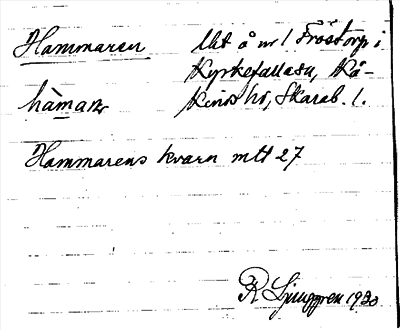 Hammaren Ut å nr 1 Fröstorp i
Kyrkefalla sn, Kå-
hàmarn kinds hd, Skarab. l.
Hammarens kvarn mtt 27
R Ljunggren 1930